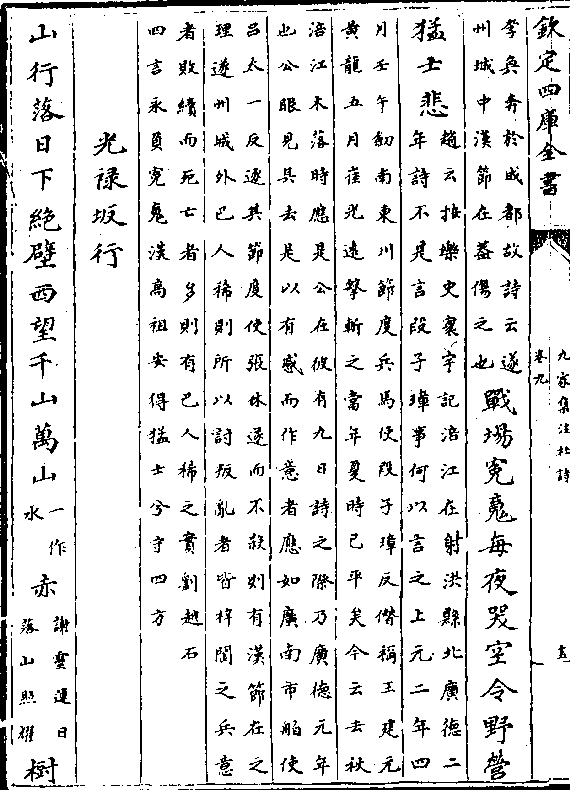 欽定四庫全書
九家集注杜詩
卷九
李奐奔於成都故詩云遂
州城中漢節在蓋傷之也
戰場寃魂每夜哭空令野營
猛士悲
趙云按樂史寰宇記涪江在射洪縣北廣德二
年詩不是言段子璋事何以言之上元二年四
月壬午劍南東川節度兵馬使段子璋反僭稱王建元
黃龍五月崔光遠擊斬之當年夏時已平矣今云去秋
涪江木落時應是公在彼有九日詩之際乃廣德元年
也公眼見其去是以有感而作意者應如廣南市舶使
呂太一反逐其節度使張休遂而不殺則有漢節在之
理遂州城外巴人稀則所以討叛亂者皆梓閬之兵意
者敗績而死亡者多則有巴人稀之實劉越石
四言永負寃魂漢高祖安得猛士兮守四方
光祿坂行
山行落日下絶壁西望千山萬山
一作
水
赤
謝靈運日
落山照耀
樹